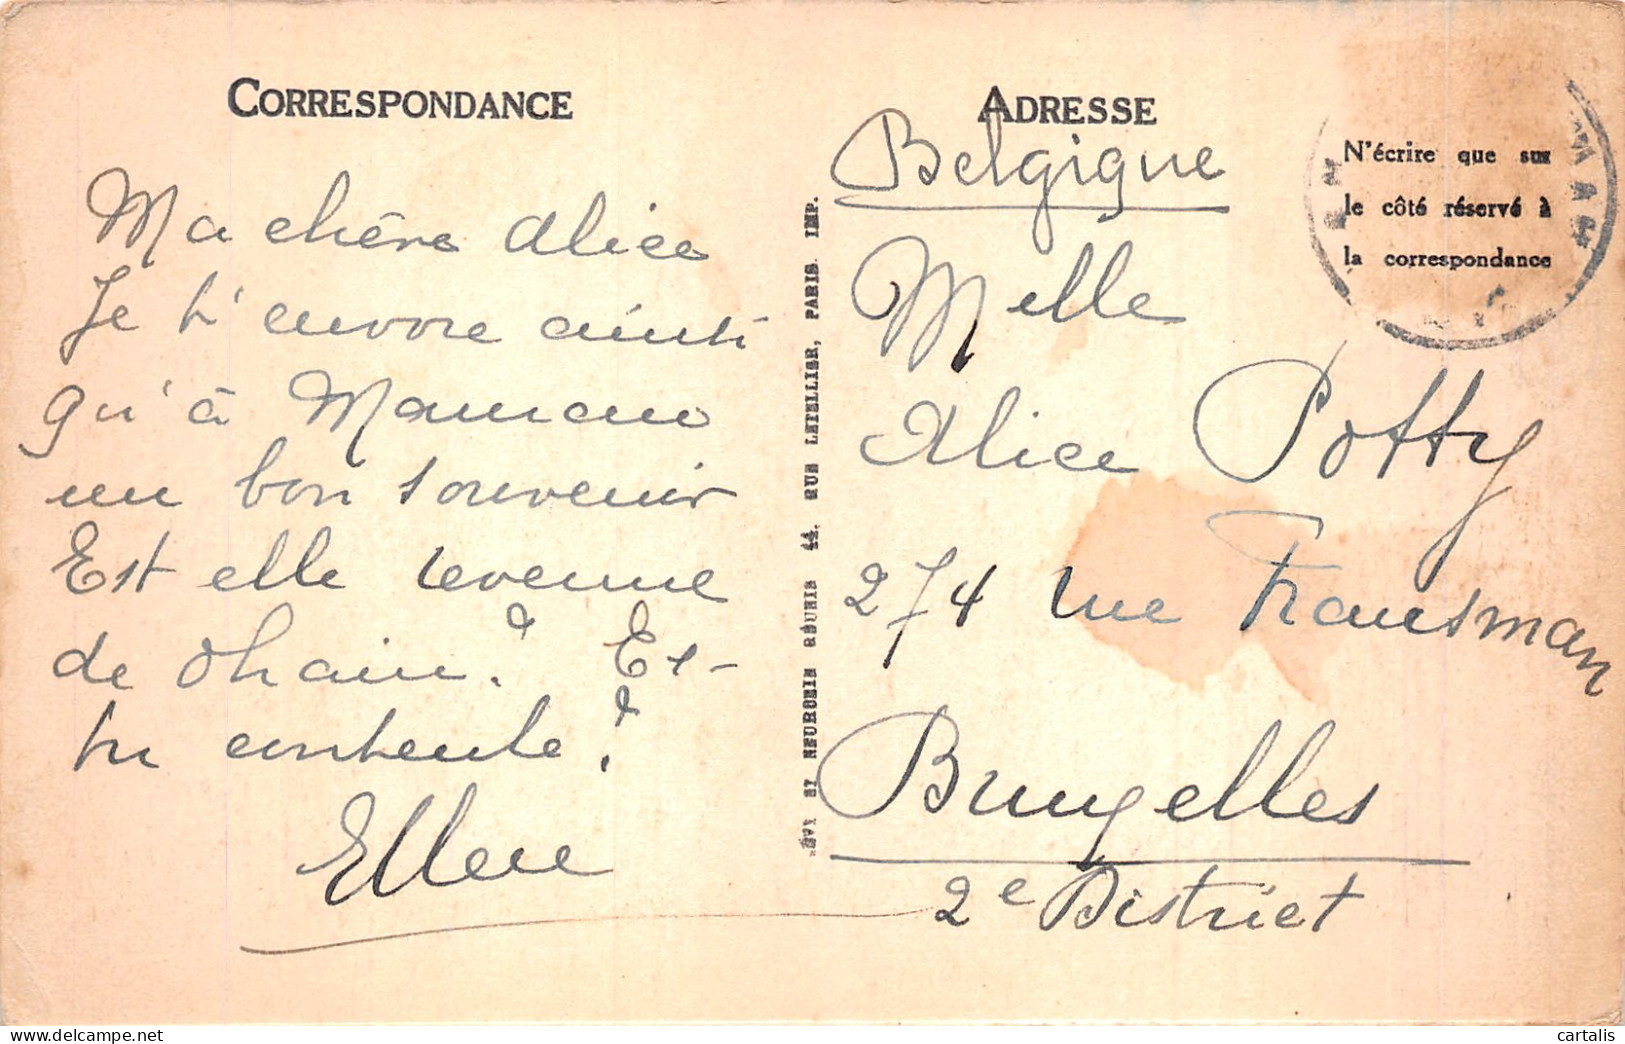 CORRESPONDANCE
Ma chère Alice
Je t'envoie ainsi
qu'à Maman
un bon souvenir
Est elle revenue
de Ohain? Es-
tu contente?
Ellen
LÉVY ET NEURDEIN RÉUNIS 44. RUE LETELLIER, PARIS. IMP.
ADRESSE
Belgique
Melle
Alice Potty
274 rue Fransman
Bruxelles
2e District
N'écrire que sur
le côté réservé à
la correspondance
cartalis
www.delcampe.net